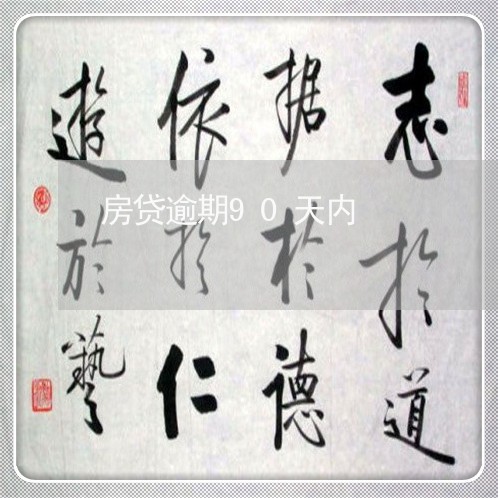 志於道
据於德
依於仁
遊於藝
房贷逾期90天内